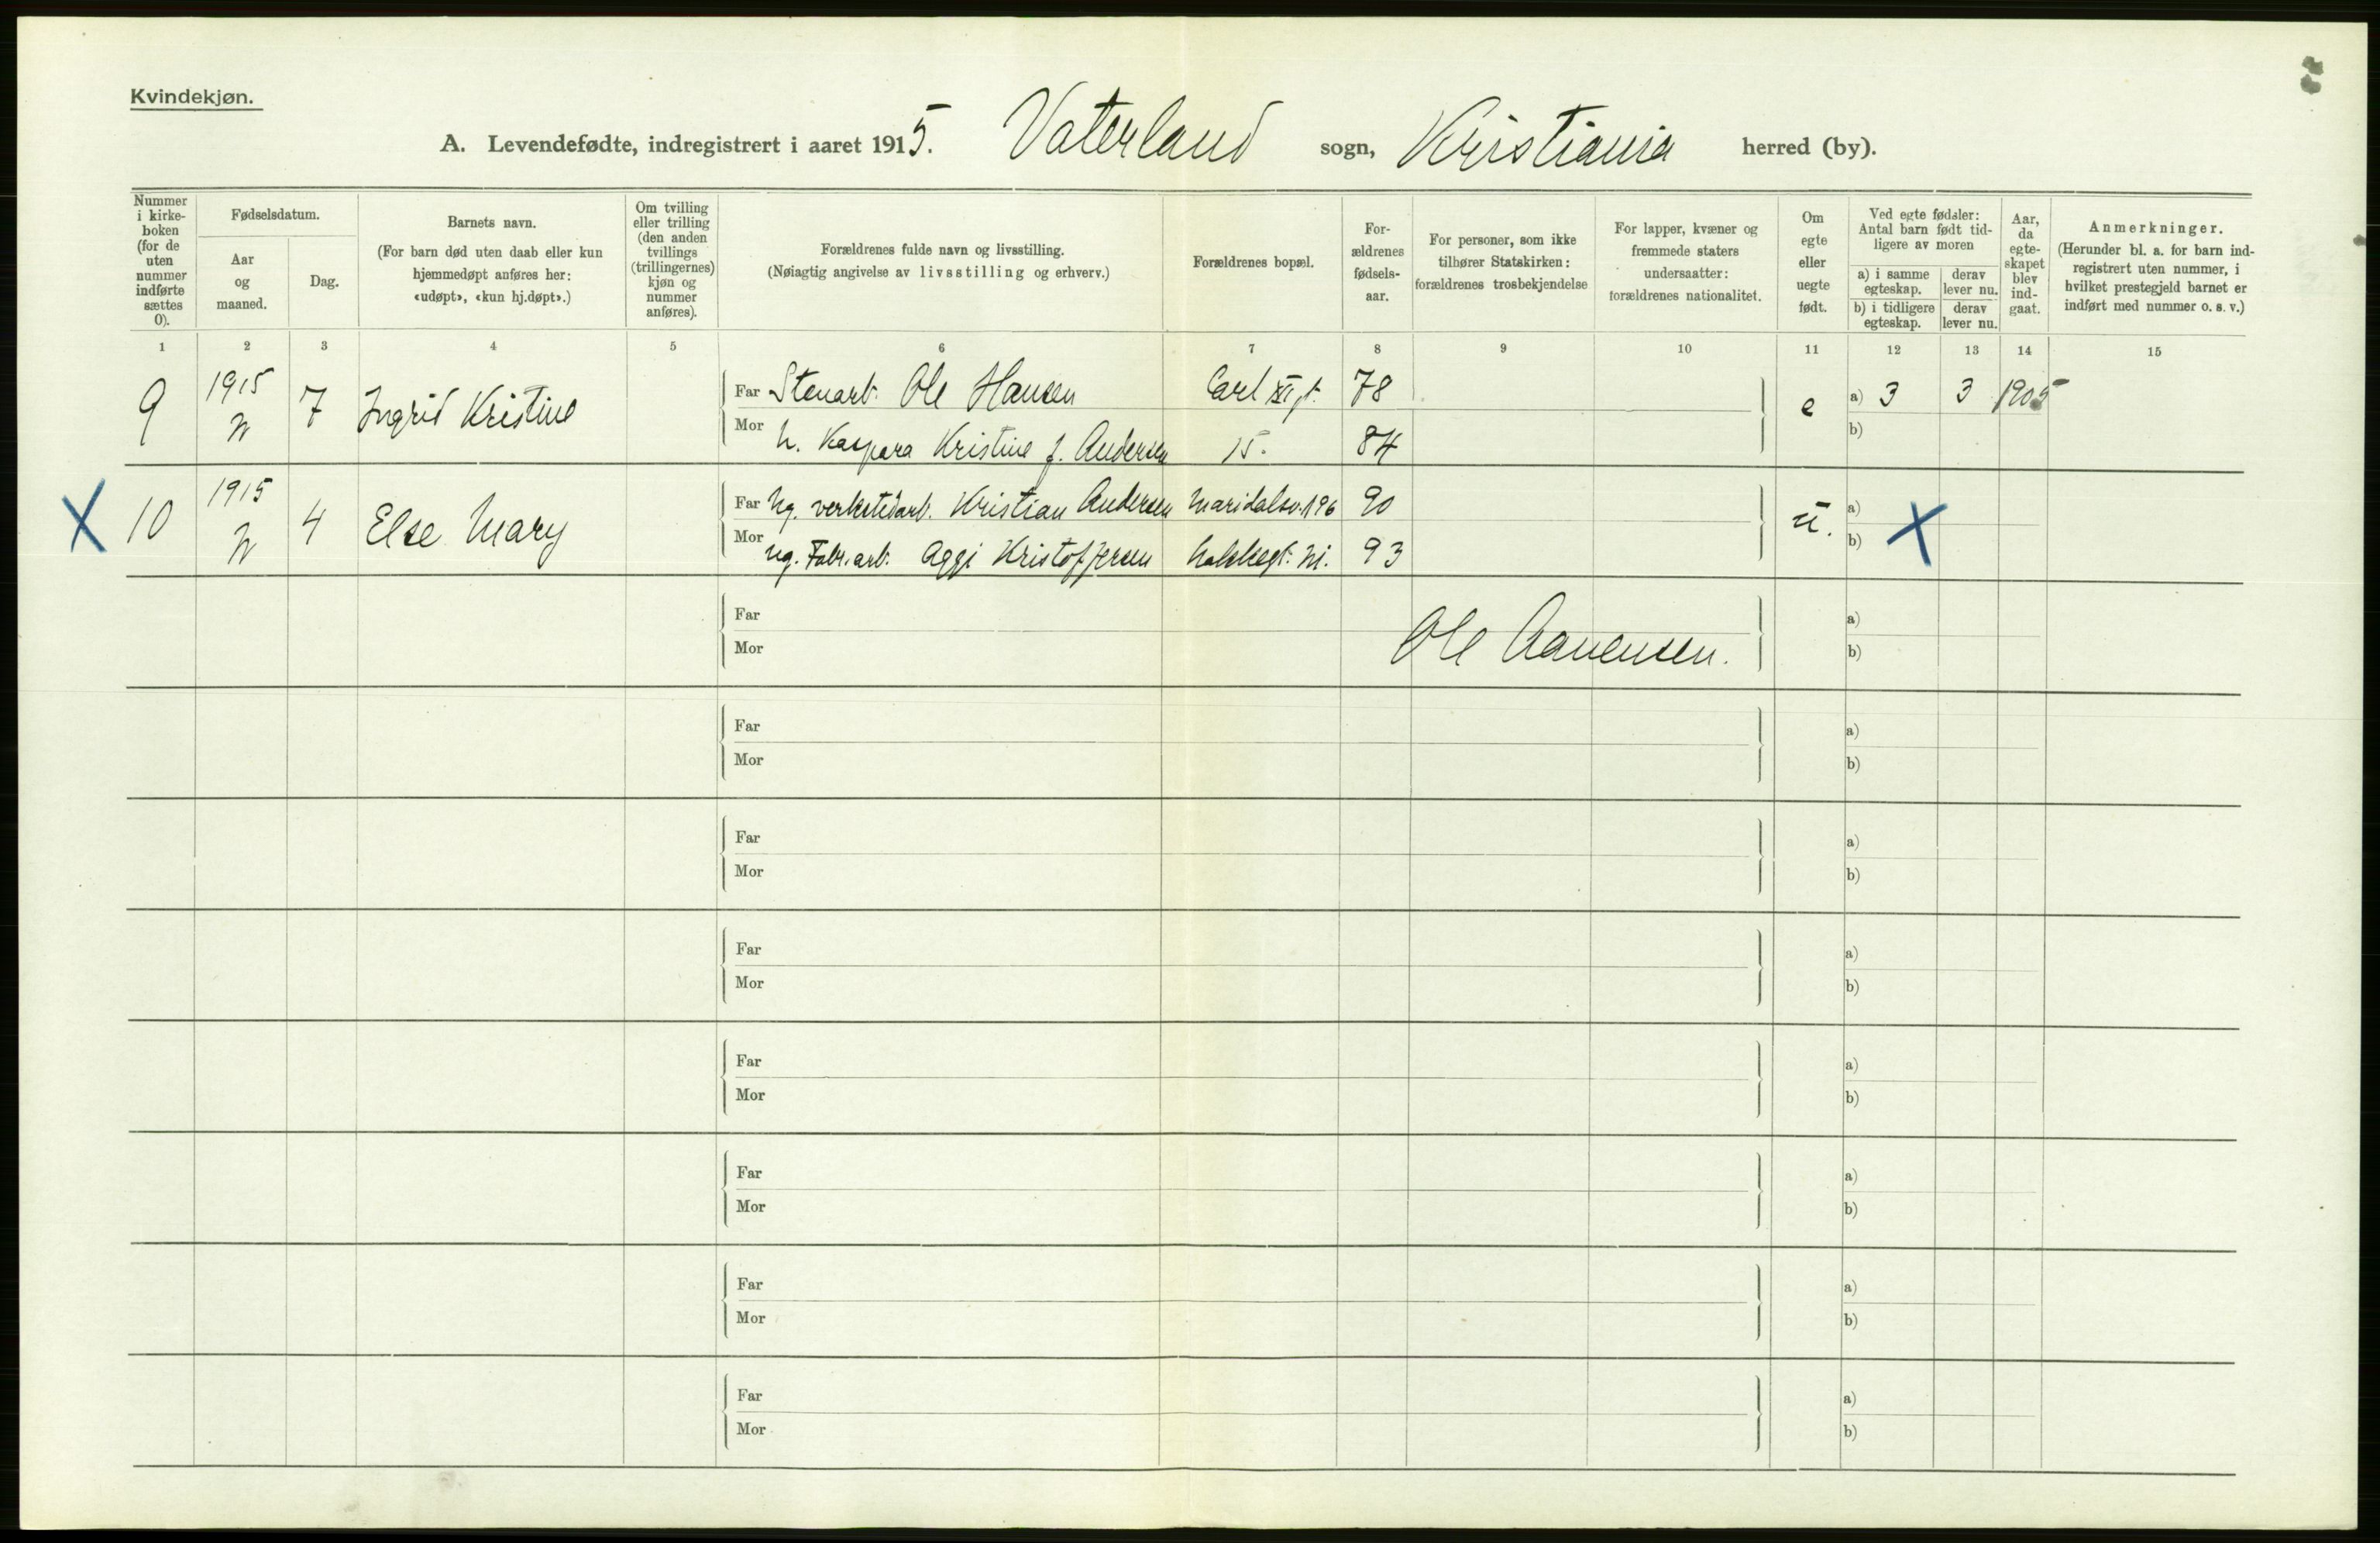 Kvindekjøn.
A. Levendefødte, indregistrert i aaret 1915. Vaterland sogn, Kristiania herred (by).
Nummer i kirke-boken (for de uten nummer indførte sættes 0).
Fødselsdatum.
Aar og maaned.
Dag.
Barnets navn.
(For barn død uten daab eller kun hjemmedøpt anføres her: «udøpt», «kun hj.døpt».)
Om tvilling eller trilling (den anden tvillings (trillingernes) kjøn og nummer anføres).
Forældrenes fulde navn og livsstilling.
(Nøiagtig angivelse av livsstilling og erhverv.)
Forældrenes bopæl.
For-ældrenes fødsels-aar.
For personer, som ikke tilhører Statskirken: forældrenes trosbekjendelse
For lapper, kvæner og fremmede staters undersaatter: forældrenes nationalitet.
Om egte eller uegte født.
Ved egte fødsler: Antal barn født tid-ligere av moren
a) i samme egteskap.
derav lever nu.
b) i tidligere egteskap.
derav lever nu.
Aar, da egte-skapet blev ind-gaat.
Anmerkninger.
(Herunder bl. a. for barn ind-registrert uten nummer, i hvilket prestegjeld barnet er indført med nummer o. s. v.)
1 2 3 4 5 6 7 8 9 10 11 12 13 14 15
9 1915 7 Ingrid Kristine Far Stenarb. Ole Hansen Carl XI gt. 78 e a) 3 3 1905
Mor h. Kaspara Kristine f. Andersen 15. 84 b)
X 10 1915 4 Else Mary Far Ug. verkstedarb. Kristian Andersen Maridalsv. 196 90 u. a) X
Mor ug. Fabr. arb. Aggi Kristoffersen 93 b)
Far a)
Ole Aanensen.
Mor b)
Far a)
Mor b)
Far a)
Mor b)
Far a)
Mor b)
Far a)
Mor b)
Far a)
Mor b)
Far a)
Mor b)
Far a)
Mor b)